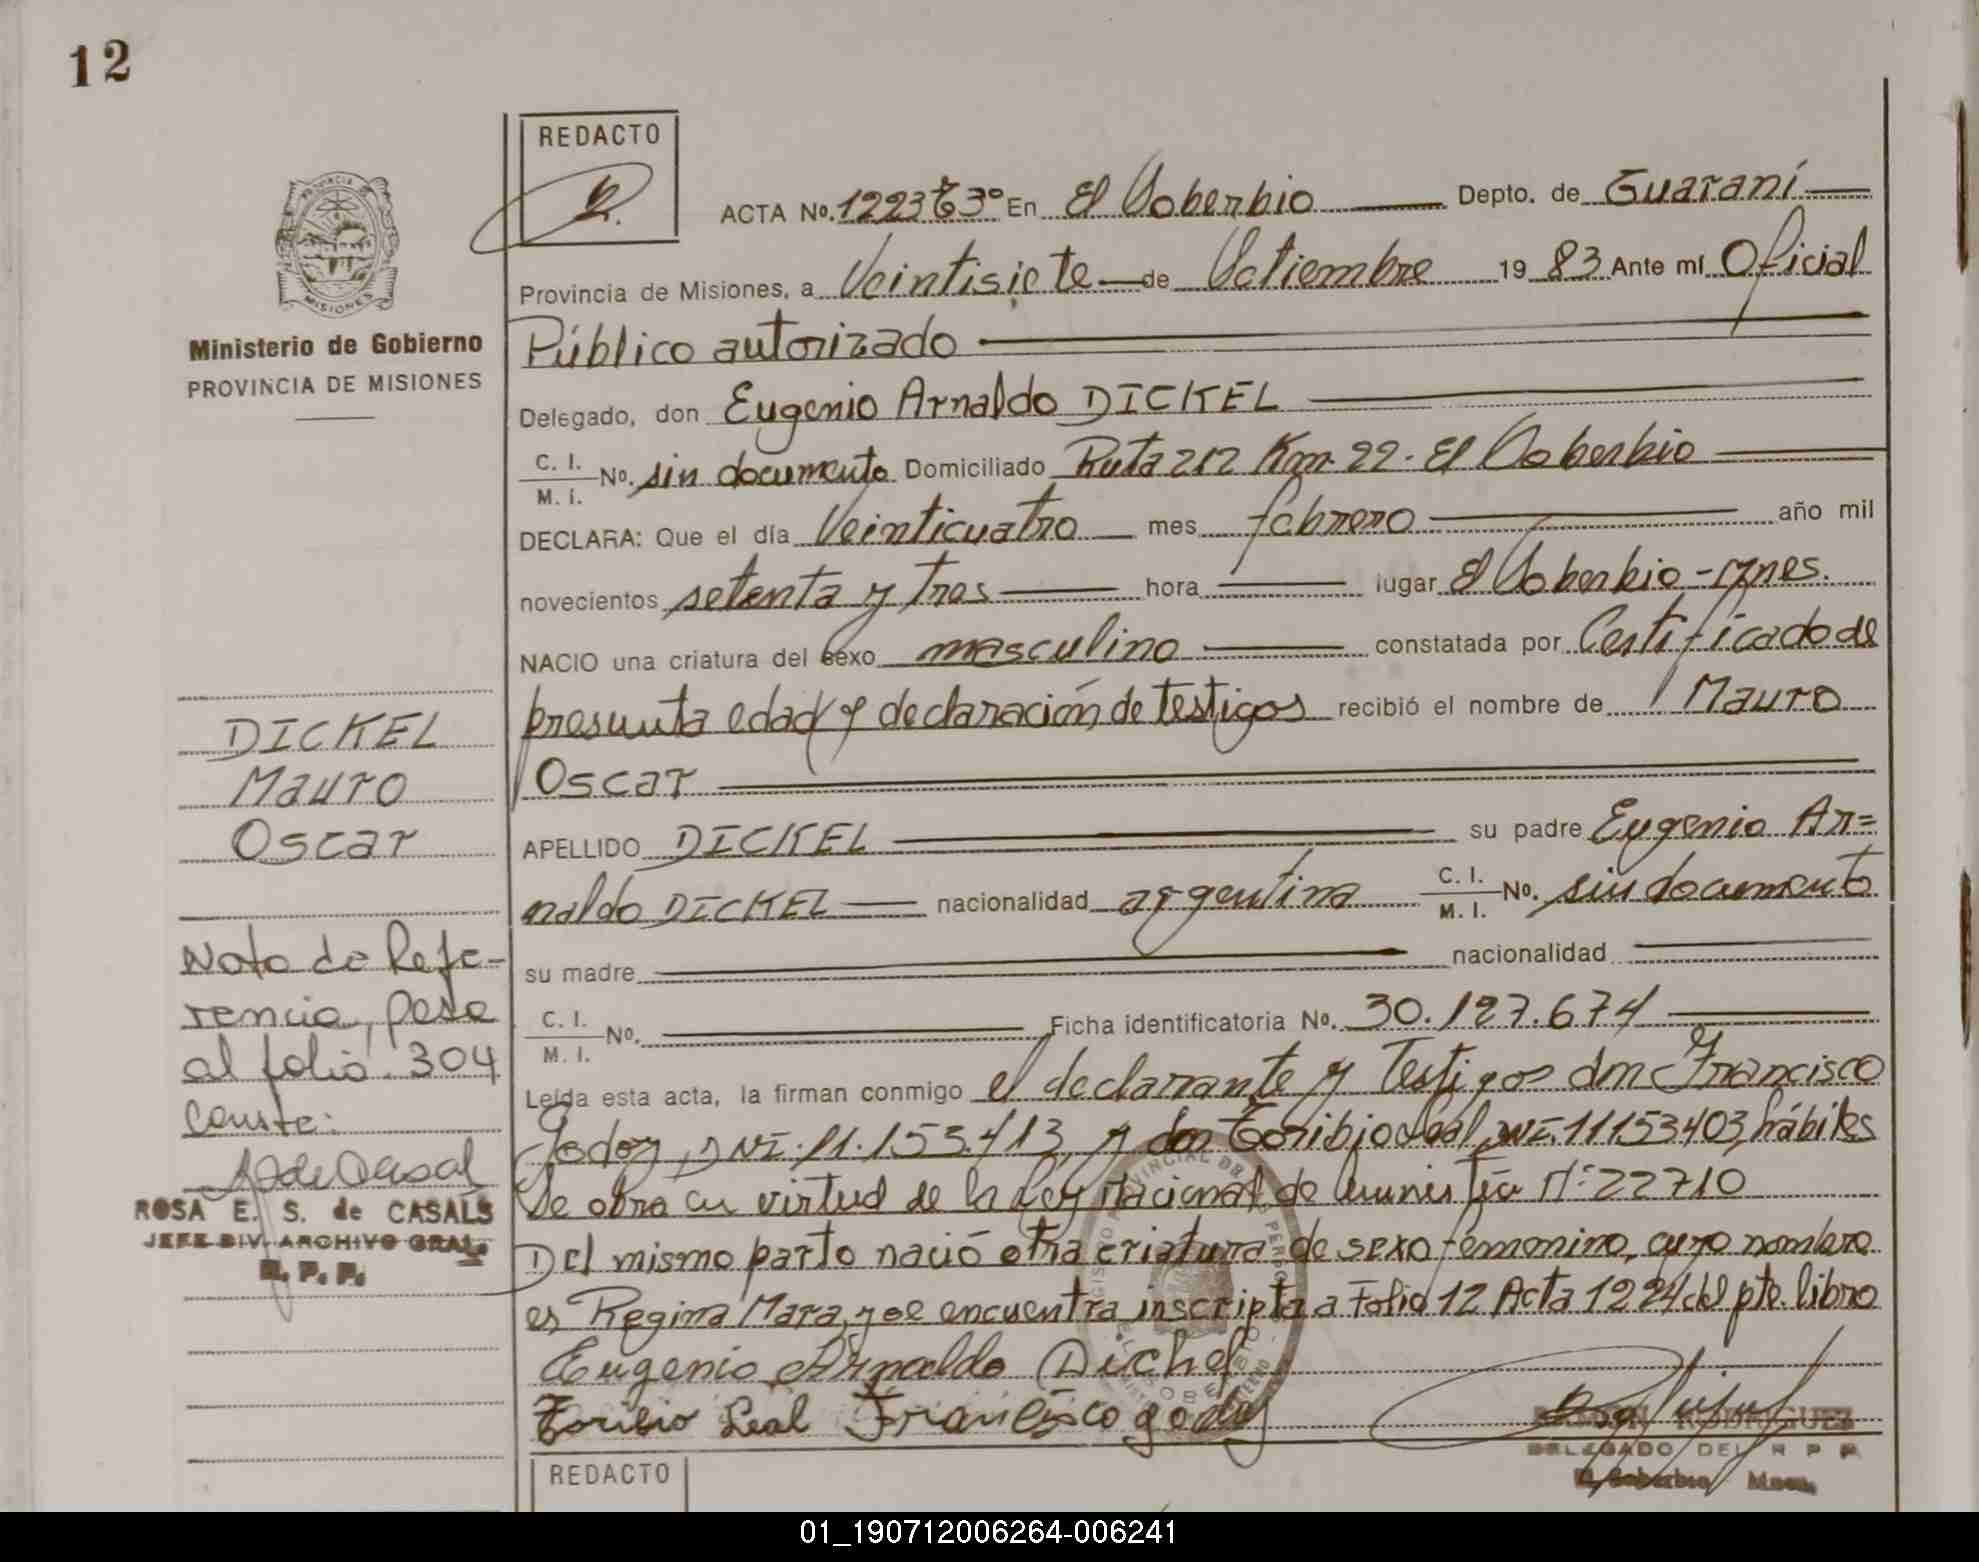 12
REDACTO
ACTA No. 1223 T 3° En El Soberbio Depto. de Guaraní
Provincia de Misiones, a Veintisiete de Setiembre 19 83 Ante mí Oficial
Público autorizado
Delegado, don Eugenio Arnaldo DICKEL
C. I.
M. I. No. sin documento Domiciliado Ruta 212 Km. 22. El Soberbio
DECLARA: Que el día Veinticuatro mes febrero año mil
novecientos setenta y tres hora lugar El Soberbio - Mnes.
NACIO una criatura del sexo masculino constatada por Certificado de
presunta edad y declaración de testigos recibió el nombre de Mauro
Oscar
APELLIDO DICKEL su padre Eugenio Ar=
naldo DICKEL nacionalidad argentina C. I. M. I. No. sin documento
su madre nacionalidad
C. I. M. I. No. Ficha identificatoria No. 30.127.674
Leída esta acta, la firman conmigo el declarante y Testigos don Francisco
Godoy, DNI. 11.153.413, y don Toribio Leal, DNI. 11153403, hábiles
Se obra en virtud de la Ley Nacional de Amnistía N° 22710
Del mismo parto nació otra criatura de sexo femenino, cuyo nombre
es Regina Mara, y se encuentra inscripta a Folio 12 Acta 1224 del pte. libro
Eugenio Arnaldo Dickel
Toribio Leal Francisco godoy
RAMON RODRIGUEZ
DELEGADO DEL R P P
El Soberbio Mnes.
REDACTO
PROVINCIA DE
MISIONES
Ministerio de Gobierno
PROVINCIA DE MISIONES
DICKEL
Mauro
Oscar
Nota de Refe-
rencia, pase
al folio 304
Conste:
ROSA E. S. de CASALS
JEFE DIV. ARCHIVO GRAL.
R. P. P.
01_190712006264-006241